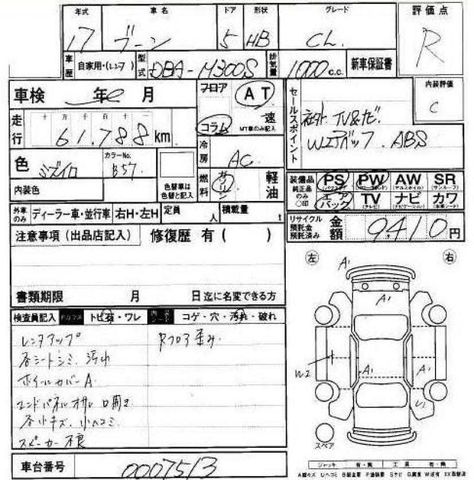 年式 車名 ドア 形状 グレード 評価点
17 ブーン 5 HB CL R
車歴 自家用・(レンタ) 型式 DBA-M300S 排気量 1000 c.c. 新車保証書
車検 年 月 フロア AT 速 コラム MT車のみ記入 セールスポイント 社外 TV&ナビ 内装評価 C
走行 十万 万 千 百 十 一 61,788 km Wエアバッグ ABS
色 カラーNo. B57 冷房 AC
内装色 色替車は色替と記入 燃料 ガソリン 軽油 装備品 純正品のみ○印 PS PW AW SR
エアバッグ TV ナビ カワ
外車のみ ディーラー車・並行車 右H・左H 定員 人 積載量 t リサイクル預託金 預託済み 金額 9410 円
注意事項 (出品店記入) 修復歴 有 ( )
左 右
書類期限 月 日 迄に名変できる方
検査員記入 トビ石・ワレ コゲ・穴・汚れ・破れ
レンタアップ Rフロア歪み
各シートシミ、汚れ
ホイルカバーA
エンドパネル
各小キズ、小ヘコミ
スピーカー不良
A1
A1
W2
A1
A1
U1
スペア
車台番号 0007513
ジャッキ 有・無 工具 有・無